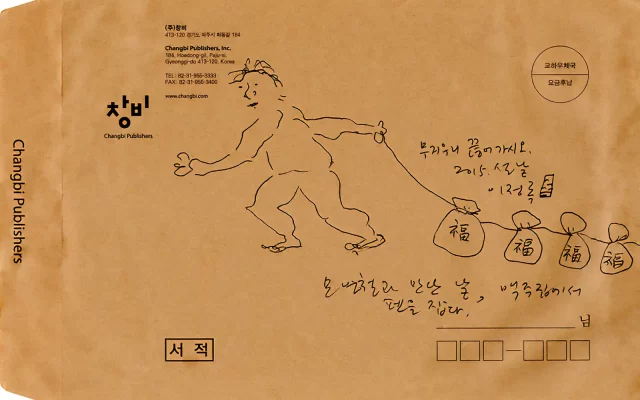 (주)창비
413-120 경기도 파주시 회동길 184
Changbi Publishers, Inc.
184, Hoedong-gil, Paju-si,
Gyeonggi-do 413-120, Korea
TEL: 82-31-955-3333
FAX: 82-31-955-3400
www.changbi.com
창비
Changbi Publishers
Changbi Publishers
교하우체국
요금후납
끌어가시오.
2015. 설날
이정록
福
福
福
福
만난 날, 맥주집에서
펜을 잡다.
님
서 적